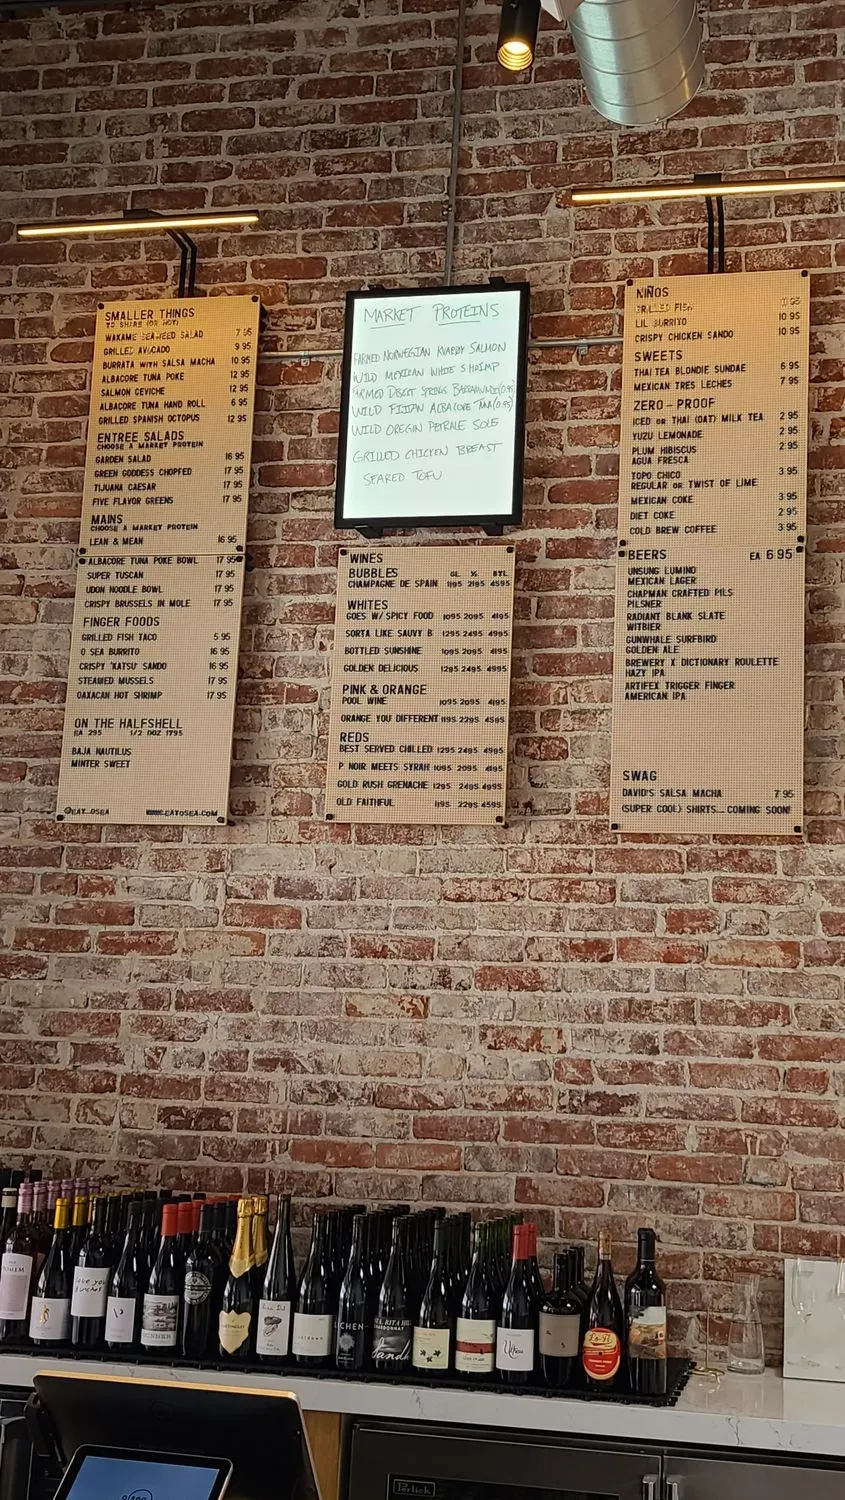 SMALLER THINGS
TO SHARE (OR NOT)
WAKAME SEAWEED SALAD 7 95
GRILLED AVOCADO 9 95
BURRATA WITH SALSA MACHA 10 95
ALBACORE TUNA POKE 12 95
SALMON CEVICHE 12 95
ALBACORE TUNA HAND ROLL 6 95
GRILLED SPANISH OCTOPUS 12 95
ENTREE SALADS
CHOOSE A MARKET PROTEIN
GARDEN SALAD 16 95
GREEN GODDESS CHOPPED 17 95
TIJUANA CAESAR 17 95
FIVE FLAVOR GREENS 17 95
MAINS
CHOOSE A MARKET PROTEIN
LEAN & MEAN 16 95
ALBACORE TUNA POKE BOWL 17 95
SUPER TUSCAN 17 95
UDON NOODLE BOWL 17 95
CRISPY BRUSSELS IN MOLE 17 95
FINGER FOODS
GRILLED FISH TACO 5 95
O SEA BURRITO 16 95
CRISPY 'KATSU' SANDO 16 95
STEAMED MUSSELS 17 95
OAXACAN HOT SHRIMP 17 95
ON THE HALFSHELL
EA 295 1/2 DOZ 1795
BAJA NAUTILUS
MINTER SWEET
@EAT_OSEA WWW.EATOSEA.COM
MARKET PROTEINS
FARMED NORWEGIAN KVAROY SALMON
WILD MEXICAN WHITE SHRIMP
FARMED DESERT SPRINGS BARRAMUNDI (0.95)
WILD FIJIAN ALBACORE TUNA (0.95)
WILD OREGIN PETRALE SOLE
GRILLED CHICKEN BREAST
SEARED TOFU
WINES
BUBBLES GL ½ BTL
CHAMPAGNE DE SPAIN 1195 2195 4595
WHITES
GOES W/ SPICY FOOD 1095 2095 4195
SORTA LIKE SAUVY B 1295 2495 4995
BOTTLED SUNSHINE 1095 2095 4195
GOLDEN DELICIOUS 1295 2495 4995
PINK & ORANGE
POOL WINE 1095 2095 4195
ORANGE YOU DIFFERENT 1195 2295 4595
REDS
BEST SERVED CHILLED 1295 2495 4995
P NOIR MEETS SYRAH 1095 2095 4195
GOLD RUSH GRENACHE 1295 2495 4995
OLD FAITHFUL 1195 2295 4595
NIÑOS
GRILLED FISH 10 95
LIL BURRITO 10 95
CRISPY CHICKEN SANDO 10 95
SWEETS
THAI TEA BLONDIE SUNDAE 6 95
MEXICAN TRES LECHES 7 95
ZERO - PROOF
ICED OR THAI (OAT) MILK TEA 2 95
YUZU LEMONADE 2 95
PLUM HIBISCUS 2 95
AGUA FRESCA
TOPO CHICO 3 95
REGULAR OR TWIST OF LIME
MEXICAN COKE 3 95
DIET COKE 2 95
COLD BREW COFFEE 3 95
BEERS EA 6 95
UNSUNG LUMINO
MEXICAN LAGER
CHAPMAN CRAFTED PILS
PILSNER
RADIANT BLANK SLATE
WITBIER
GUNWHALE SURFBIRD
GOLDEN ALE
BREWERY X DICTIONARY ROULETTE
HAZY IPA
ARTIFEX TRIGGER FINGER
AMERICAN IPA
SWAG
DAVID'S SALSA MACHA 7 95
(SUPER COOL) SHIRTS... COMING SOON!
love you
bunches
LICHEN
STA. RITA HILLS
CHARDONNAY
Sandhi
Perlick